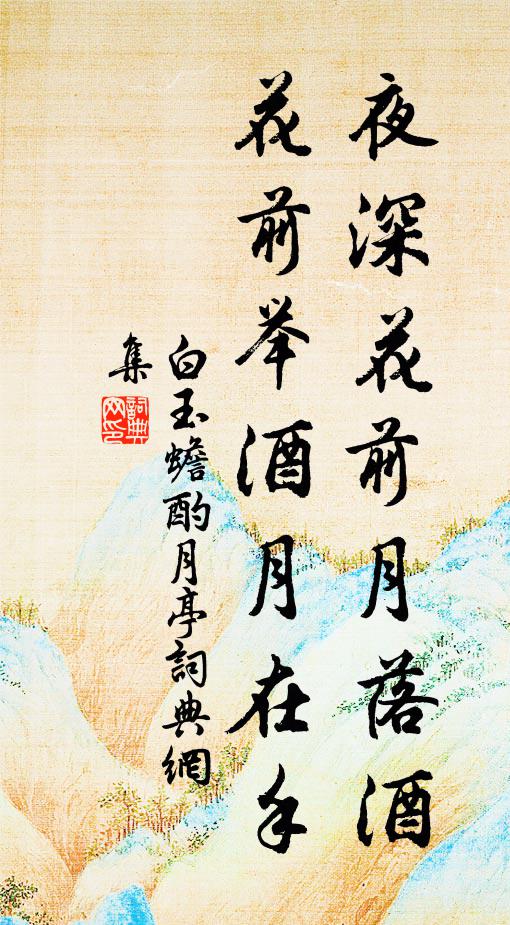 夜深花前月落酒
花前举酒月在手
白玉蟾酌月亭詞典網
集
詞典网印